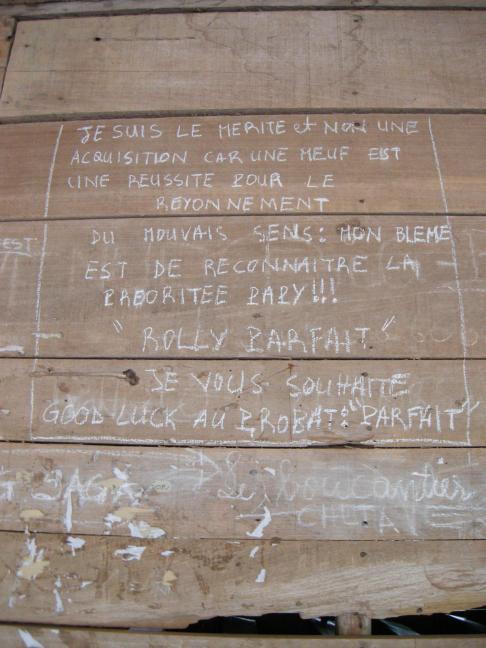 JE SUIS LE MERITE et NON UNE
ACQUISITION CAR UNE MEUF EST
UNE REUSSITE POUR LE
REYONNEMENT
DU MOUVAIS SENS: MON BLEME
EST
EST DE RECONNAITRE LA
PRBORITEE PAPY!!!
"ROLLY PARFAIT"
JE VOUS SOUHAITE
GOOD LUCK AU PROBAT: "PARFAIT"
SAGA Le boucantier
CHUTA